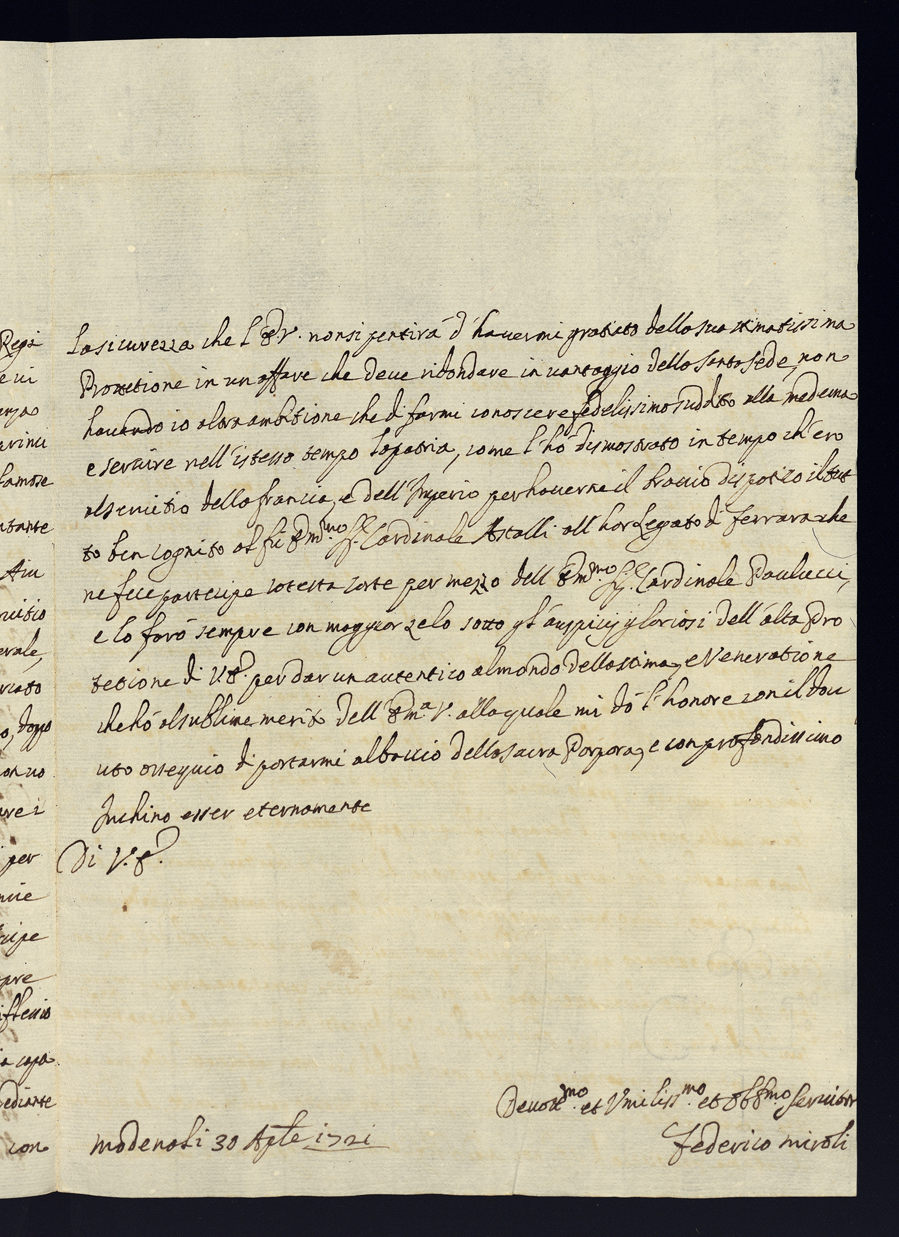 la sicurezza che l'E.V. non si pentirà d'havermi gratiato della sua stimatissima
Protettione in un affare che deve ridondare in vantaggio della santa sede, non
havendo io altra ambitione che di farmi conoscere fedelissimo suddito alla medema
e servire nell'istesso tempo la patria, come l'hò dismostrato in tempo ch'ero
al servitio della francia, e dell'Imperio per haverne il braccio dispotico il tut
to ben cognito al fù Em.mo Sr. Cardinale Astalli all hor Legato di Ferrara che
ne fece partecipe cotesta Corte per mezzo dell Em.mo Sr. Cardinale Paulucci,
e lo farò sempre con maggior zelo sotto gl'auspicij gloriosi dell'alta Pro
tetione di V.E. per dar un autentico al mondo della stima, e Veneratione
che hò al sublime merito dell'Em.a V. alla quale mi dò l'honore con il dou
uto ossequio di portarmi al baccio della sacra Porpora, e con profondissimo
Inchino esser eternamente
Di V.E.
Devot.mo et Umiliss.mo et Obb.mo servitor
Modena li 30 Aple 1721
Federico miroli
Regi
e vi
arinci
famose
ntante
Aiu
vitio
erale,
o, doppo
ave i
per
cipe
pre
ia copa
ediante
con